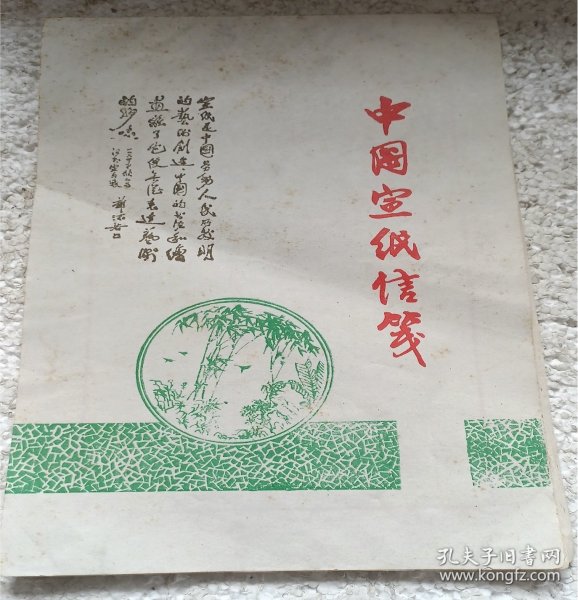 中国宣纸信笺
宣纸是中国劳动人民所发明
的艺术创造，中国的书法和绘
画离了它便无从表达艺术
的妙味
郭沫若
孔夫子旧书网
www.kongfz.com